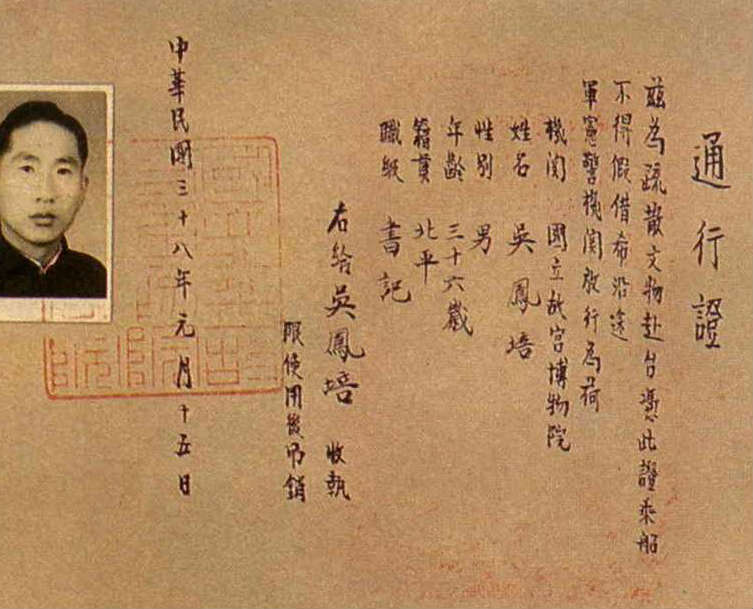 通行證
茲為疏散文物赴台憑此證乘船
不得假借希沿途
軍憲警機關放行為荷
機關 國立故宮博物院
姓名 吳鳳培
性別 男
年齡 三十六歲
籍貫 北平
職級 書記
右給吳鳳培 收執
限使用後吊銷
中華民國三十八年元月十五日